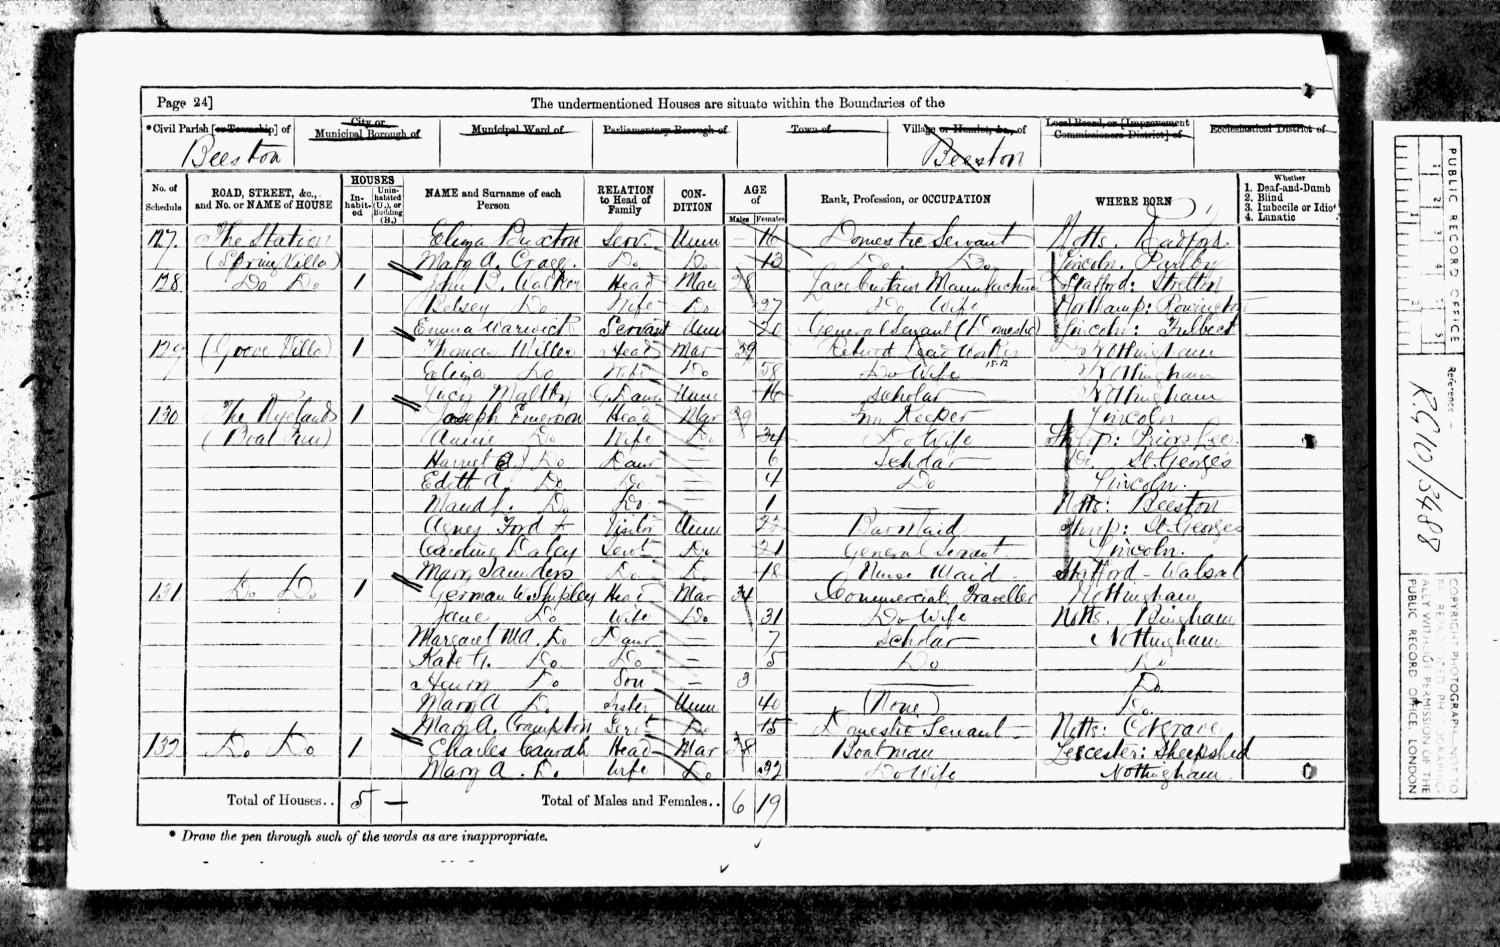 Page 24]
The undermentioned Houses are situate within the Boundaries of the
*Civil Parish [or Township] of
City or Municipal Borough of
Municipal Ward of
Parliamentary Borough of
Town of
Village or Hamlet, &c., of
Local Board, or [Improvement Commissioners District] of
Ecclesiastical District of
Beeston
Beeston
No. of Schedule
ROAD, STREET, &c., and No. or NAME of HOUSE
HOUSES
In-habit-ed
Unin-habited (U.), or Building (B.)
NAME and Surname of each Person
RELATION to Head of Family
CON-DITION
AGE of
Males
Females
Rank, Profession, or OCCUPATION
WHERE BORN
Whether
1. Deaf-and-Dumb
2. Blind
3. Imbecile or Idiot
4. Lunatic
127 The Station Eliza Buxton Serv. Unm 16 Domestic Servant Notts. Radford
(Spring Villa) Mary A. Cragg Do Do 13 Do Do Lincoln.
128 Do Do 1 John R. Walker Head Mar 28 Lace Curtain Manufacturer Stafford: Stretton
Betsey Do Wife Do 27 Do Wife Northamp:
Emma Warwick Servant Unm 20 General Servant (Domestic) Lincoln: Fulbeck
129 (Grove Villa) 1 Thomas Miller Head Mar 59 Retired Lead Nottingham
Eliza Do Wife Do 58 Do Wife Nottingham
Lucy Maltby G. Daur Unm 16 Scholar Nottingham
130 The Ryelands 1 Joseph Emerson Head Mar 29 Inn Keeper Lincoln
(Boat Inn) Annie Do Wife Do 34 Do Wife Shrop: Priors Lee
Harriet A Do Daur — 6 Scholar Do St. Georges
Edith A. Do Do — 4 Do Lincoln.
Maud L. Do Do — 1 Notts: Beeston
Agnes Ford Visitor Unm 22 Bar Maid Shrop: St. Georges
Caroline Daley Servt Do 21 General Servant Lincoln.
Mary Saunders Do Do 18 Nurse Maid Stafford - Walsal
131 Do Do 1 German W. Shipley Head Mar 34 Commercial Traveller Nottingham
Jane Do Wife Do 31 Do Wife Notts. Bingham
Margaret Do Daur — 7 Scholar Nottingham
Kate G. Do Do — 5 Do Do
Henry Do Son — 3 Do.
Mary A Do Sister Unm 40 (None) Do.
Mary A. Crampton Servt Do 15 Domestic Servant Notts: Cotgrave
132 Do Do 1 Charles Head Mar 38 Boatman Leicester: Sheepshed
Mary A. Do Wife Do 32 Do Wife Nottingham
Total of Houses.. 5 —
Total of Males and Females.. 6 19
* Draw the pen through such of the words as are inappropriate.
PUBLIC RECORD OFFICE
Reference:-
RG 10/3488
COPYRIGHT PHOTOGRAPH - NOT TO
PUBLIC RECORD OFFICE, LONDON